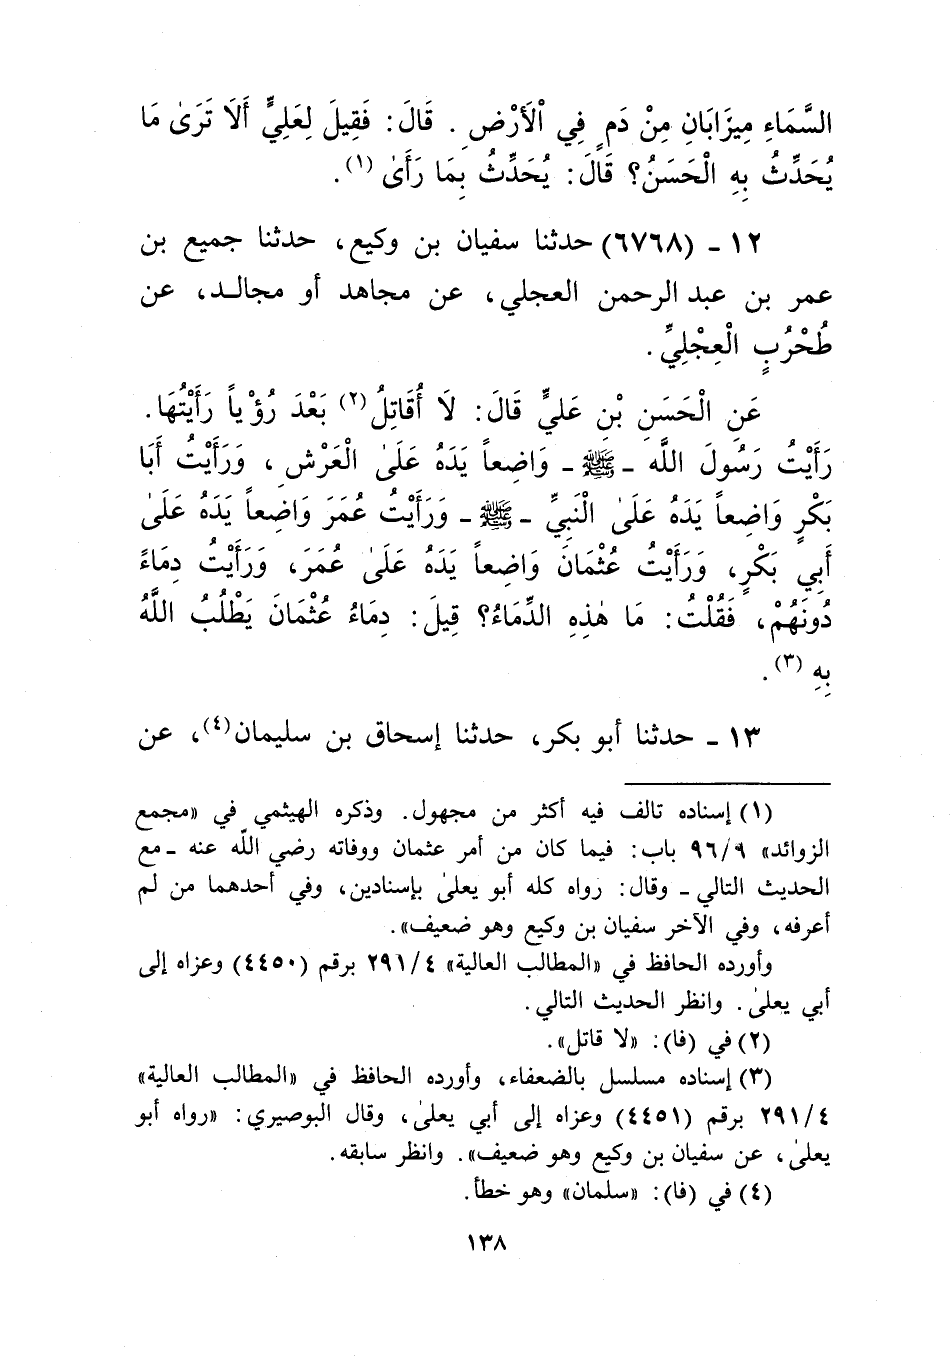 السَّمَاءِ مِيزَابَانِ مِنْ دَمٍ فِي الْأَرْضِ. قَالَ: فَقِيلَ لِعَلِيٍّ أَلَا تَرَىٰ مَا
يُحَدِّثُ بِهِ الْحَسَنُ؟ قَالَ: يُحَدِّثُ بِمَا رَأَىٰ (١).
١٢ ـ (٦٧٦٨) حدثنا سفيان بن وكيع، حدثنا جميع بن
عمر بن عبد الرحمن العجلي، عن مجاهد أو مجالـد، عن
طُحْرُبٍ الْعِجْلِيِّ.
عَنِ الْحَسَنِ بْنِ عَلِيٍّ قَالَ: لَا أُقَاتِلُ (٢) بَعْدَ رُؤْياً رَأَيْتُهَا.
رَأَيْتُ رَسُولَ اللَّه ـ ﷺ ـ وَاضِعاً يَدَهُ عَلَىٰ الْعَرْشِ، وَرَأَيْتُ أَبَا
بَكْرٍ وَاضِعاً يَدَهُ عَلَىٰ الْنَبِيِّ ـ ﷺ ـ وَرَأَيْتُ عُمَرَ وَاضِعاً يَدَهُ عَلَىٰ
أَبِي بَكْرٍ، وَرَأَيْتُ عُثْمَانَ وَاضِعاً يَدَهُ عَلَىٰ عُمَرَ، وَرَأَيْتُ دِمَاءً
دُونَهُمْ، فَقُلْتُ: مَا هٰذِهِ الدِّمَاءُ؟ قِيلَ: دِمَاءُ عُثْمَانَ يَطْلُبُ اللَّهُ
بِهِ (٣).
١٣ ـ حدثنا أبو بكر، حدثنا إسحاق بن سليمان (٤)، عن
(١) إسناده تالف فيه أكثر من مجهول. وذكره الهيثمي في «مجمع
الزوائد» ٩/ ٩٦ باب: فيما كان من أمر عثمان ووفاته رضي اللّه عنه ـ مع
الحديث التالي ـ وقال: رواه كله أبو يعلىٰ بإسنادين، وفي أحدهما من لم
أعرفه، وفي الآخر سفيان بن وكيع وهو ضعيف».
وأورده الحافظ في «المطالب العالية» ٤/ ٢٩١ برقم (٤٤٥٠) وعزاه إلى
أبي يعلىٰ. وانظر الحديث التالي.
(٢) في (فا): «لا قاتل».
(٣) إسناده مسلسل بالضعفاء، وأورده الحافظ في «المطالب العالية»
٤/ ٢٩١ برقم (٤٤٥١) وعزاه إلى أبي يعلىٰ، وقال البوصيري: «رواه أبو
يعلىٰ، عن سفيان بن وكيع وهو ضعيف». وانظر سابقه.
(٤) في (فا): «سلمان» وهو خطأ.
١٣٨